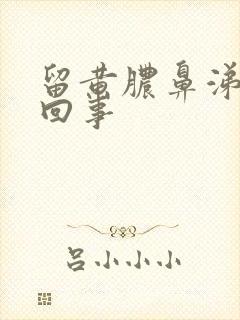 留黄脓鼻涕
回事
吕小小小